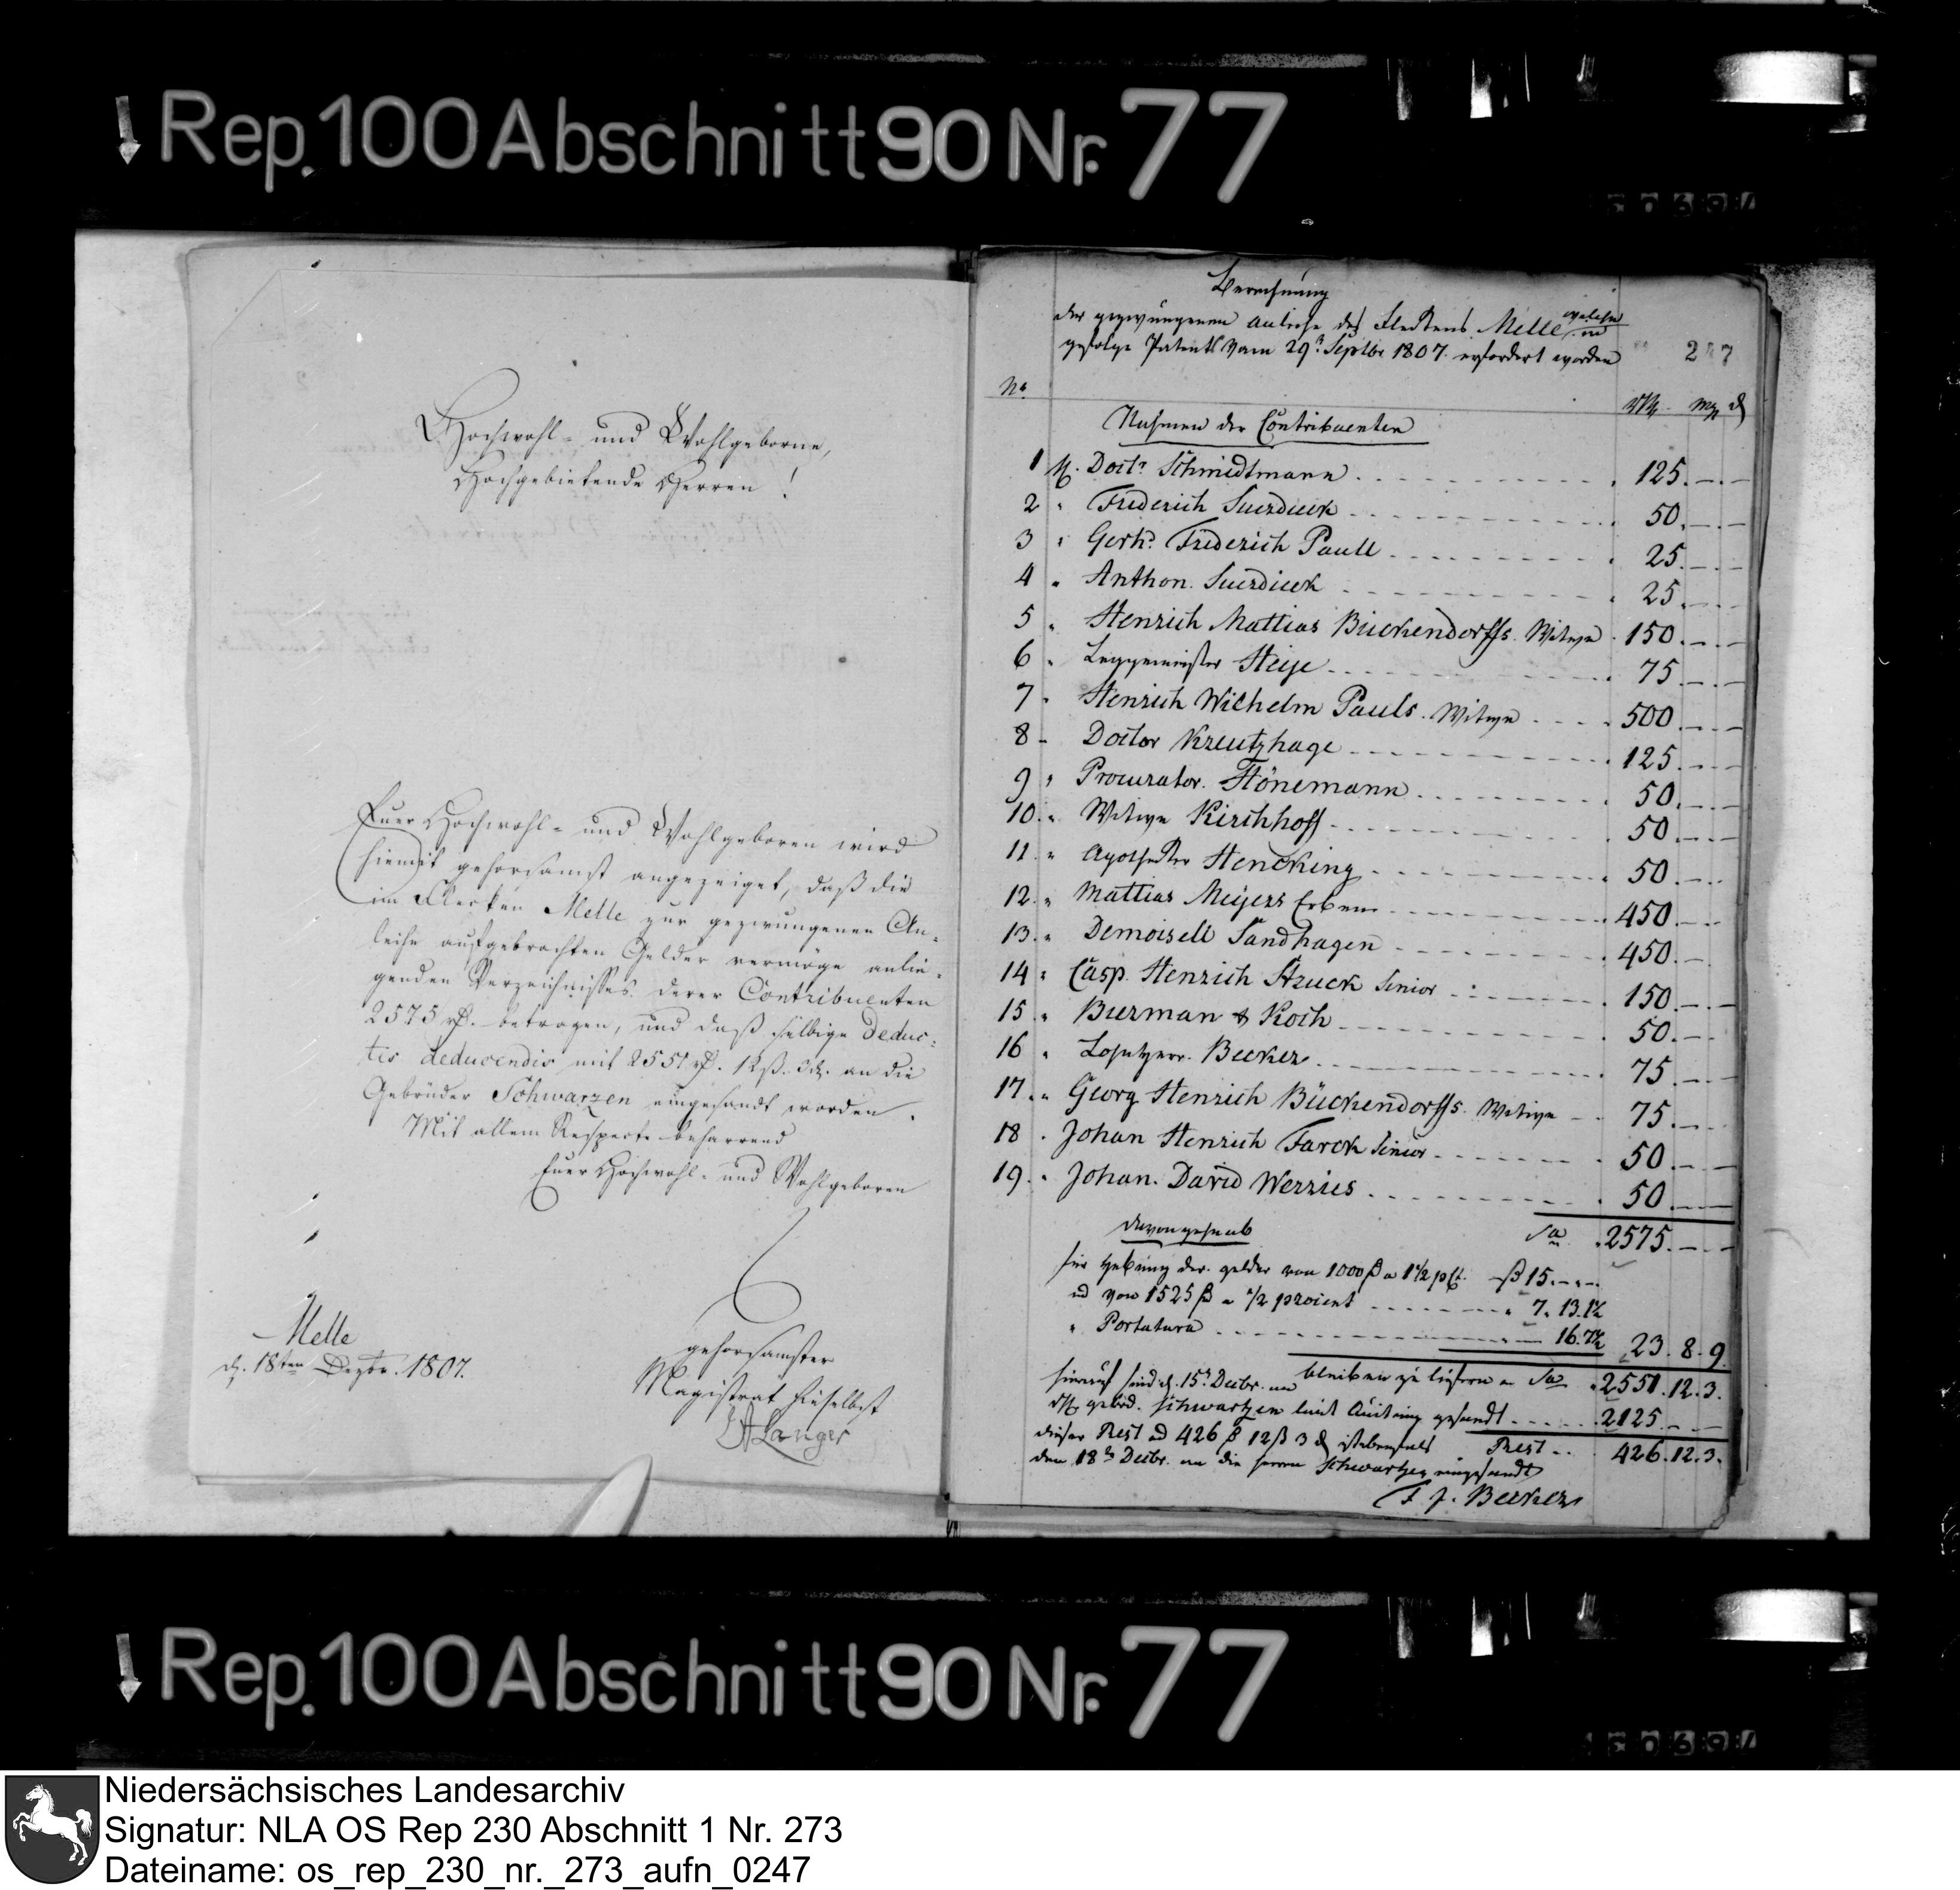 Rep. 100 Abschnitt 90 Nr. 77
Hochwohl- und Wohlgeborne,
Hochgebietende Herren!
Euer Hochwohl- und Wohlgeboren wird
hiemit gehorsamst angezeiget, daß die
im Flecken Melle zur gezwungenen An-
leihe aufgebrachten Gelder vermöge anlie-
genden Verzeichnisses derer Contribuenten
2575 rthl. betragen, und daß selbige deduc-
tis deducendis mit 2551 rthl. 12 ß. 3 d. an die
Gebrüder Schwarzen eingesandt worden.
Mit allem Respecte beharrend
Euer Hochwohl- und Wohlgeboren
Melle
d. 18ten Dezbr. 1807.
gehorsamster
Magistrat hieselbst
Langer
Berechnung
der gezwungenen Anleihe des Fleckens Melle welche in
gefolge Patents vom 29t Septbr 1807. erfordert worden
247
No
Nahmen der Contribuenten
rth mg d
1 H. Doctr Schmidtmann 125
2 " Friderich Suerdieck 50
3 " Gerhd Friderich Paull 25
4 " Anthon Suerdieck 25
5 " Henrich Mattias Bückendorffs Witwe 150
6 " Leggemeister Heije 75
7 " Henrich Wilhelm Pauls Witwe 500
8 " Doctor Kreutzhage 125
9 " Procurator Hönemann 50
10 " Witwe Kirchhoff 50
11 " Apotheker Hencking 50
12 " Mattias Meijers Erben 450
13 " Demoisell Sandhagen 450
14 " Casp. Henrich Struck Senior 150
15 " Buerman & Koch 50
16 " Becker 75
17 " Georg Henrich Bückendorffs Witwe 75
18 " Johan Henrich Farck Senior 50
19 " Johan David Werries 50
davon gehn ab Sa 2575
für Hebung der gelder von 1000 rth a 1 1/2 pCt. rth 15
ud von 1525 rth a 1/2 procent " 7. 13. 1 1/2
" Portatura 16. 7 1/2 23. 8. 9
bleiben zu liefern Sa 2551. 12. 3.
hierauf sind d. 15t Decbr. an
H gebrd. Schwartzen laut Quitung gesandt 2125
Rest 426. 12. 3.
dieser Rest ad 426 rth 12 ß 3 d
den 18ten Decbr. an die Herren Schwartzen eingesandt
F. J. Becker
Rep. 100 Abschnitt 90 Nr. 77
Niedersächsisches Landesarchiv
Signatur: NLA OS Rep 230 Abschnitt 1 Nr. 273
Dateiname: os_rep_230_nr._273_aufn_0247